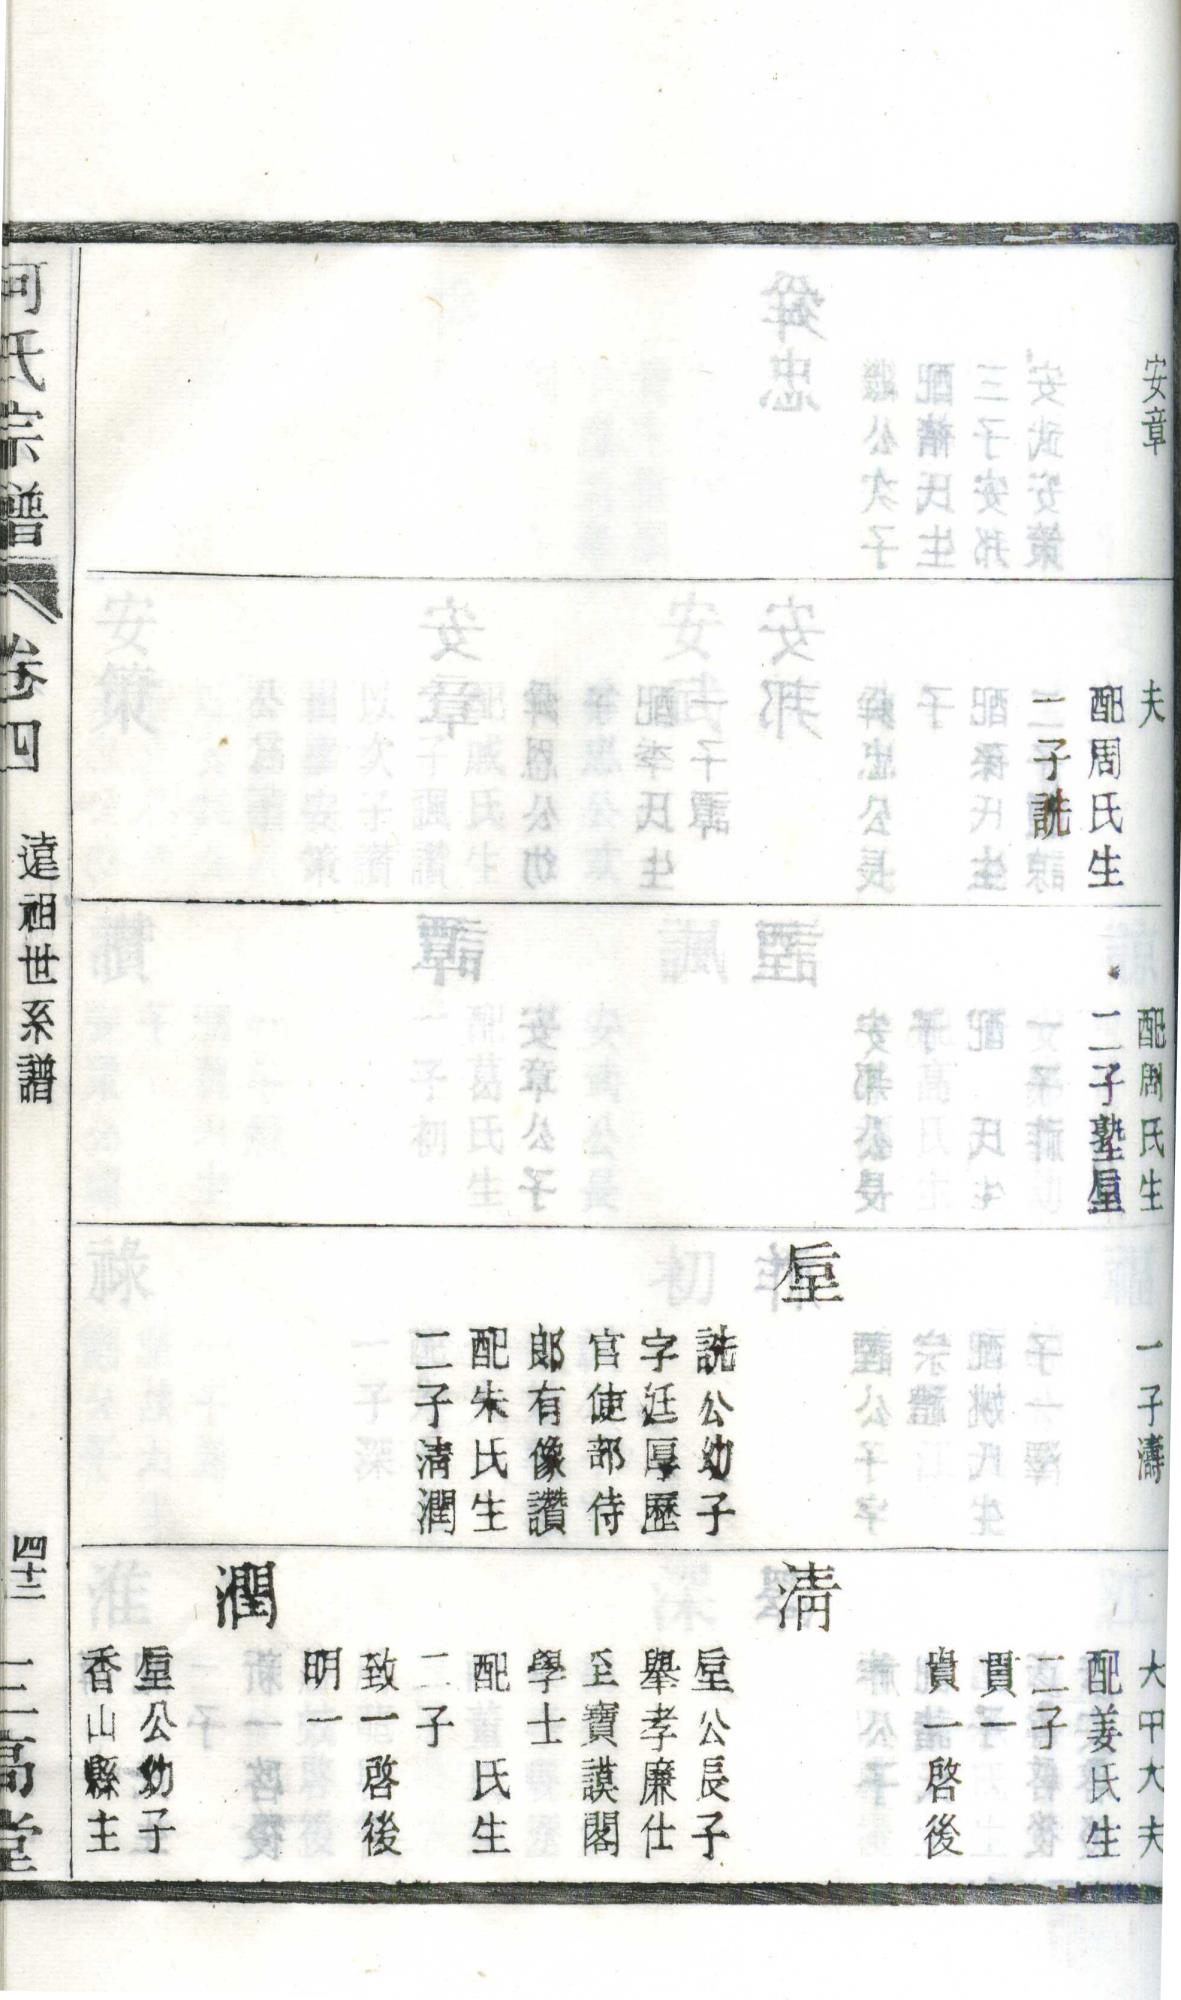 安章
夫
配周氏生
二子詵
配周氏生
二子塾垕
一子濤
垕
詵公幼子
字廷厚歷
官使部侍
郎有像讚
配朱氏生
二子清潤
大中大夫
配姜氏生
二子
貫一
貴一啓後
清
垕公長子
舉孝廉仕
至寶謨閣
學士
配　氏生
二子
致一啓後
明一
潤
垕公幼子
香山縣主
河氏宗譜
卷四
遠祖世系譜
四十二
三高堂